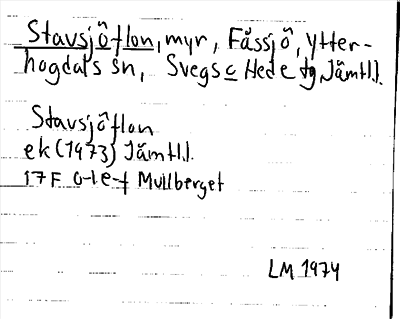 Stavsjöflon, myr, Fåssjö, Ytter-
hogdals sn, Svegs o Hede tg, Jämtl.l.
Stavsjöflon
ek (1973) Jämtl.l.
17F 0-1 e-f Mullberget
LM 1974